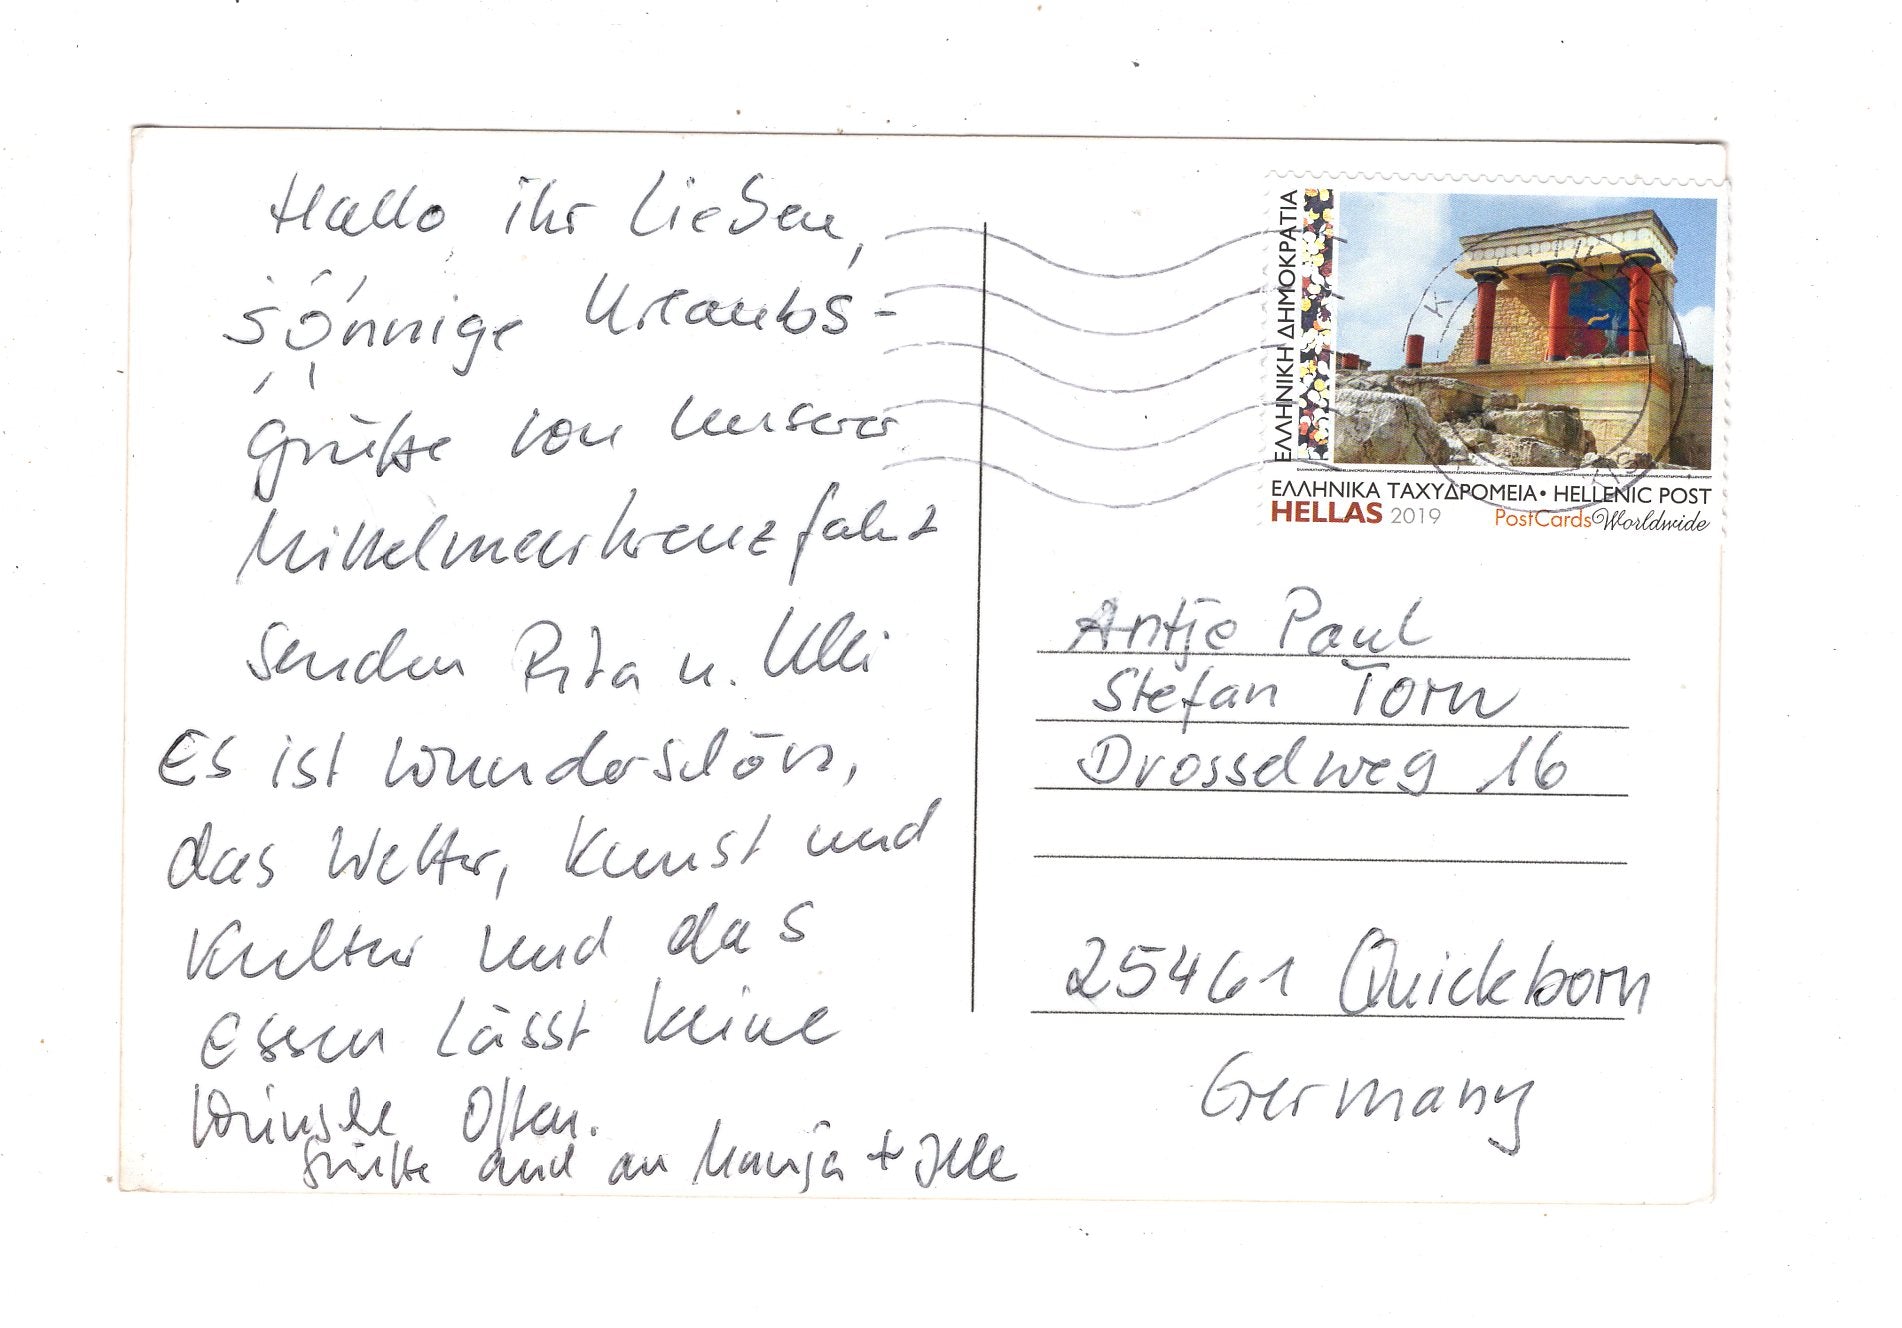 Hallo ihr Lieben,
sonnige Urlaubs-
grüße von unserer
Mittelmeerkreuzfahrt
senden Rita u. Ulli
Es ist wunderschön,
das Wetter, Kunst und
Kultur und das
Essen lässt keine
Wünsche offen.
Grüße auch an +
ΕΛΛΗΝΙΚΗ ΔΗΜΟΚΡΑΤΙΑ
ΕΛΛΗΝΙΚΑ ΤΑΧΥΔΡΟΜΕΙΑ • HELLENIC POST
HELLAS 2019 PostCards Worldwide
Antje Paul
Stefan Torn
Drosselweg 16
25461 Quickborn
Germany